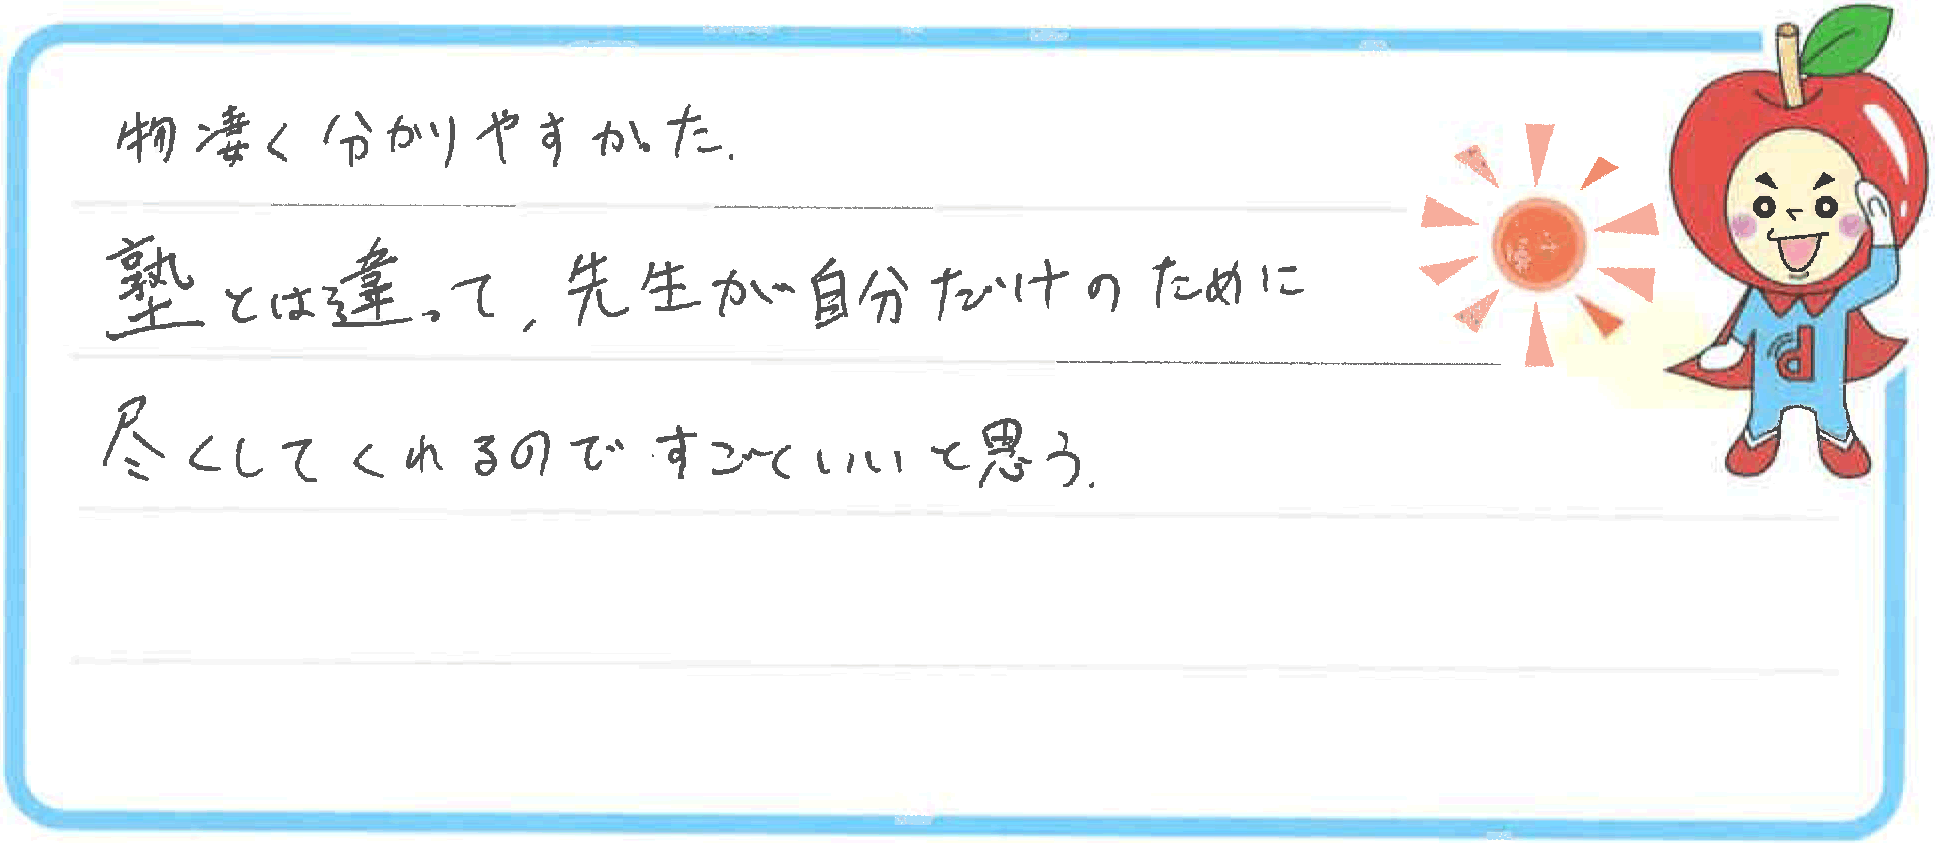 物凄く分かりやすかった.
塾とは違って,先生が自分だけのために
尽くしてくれるのですごくいいと思う.
d